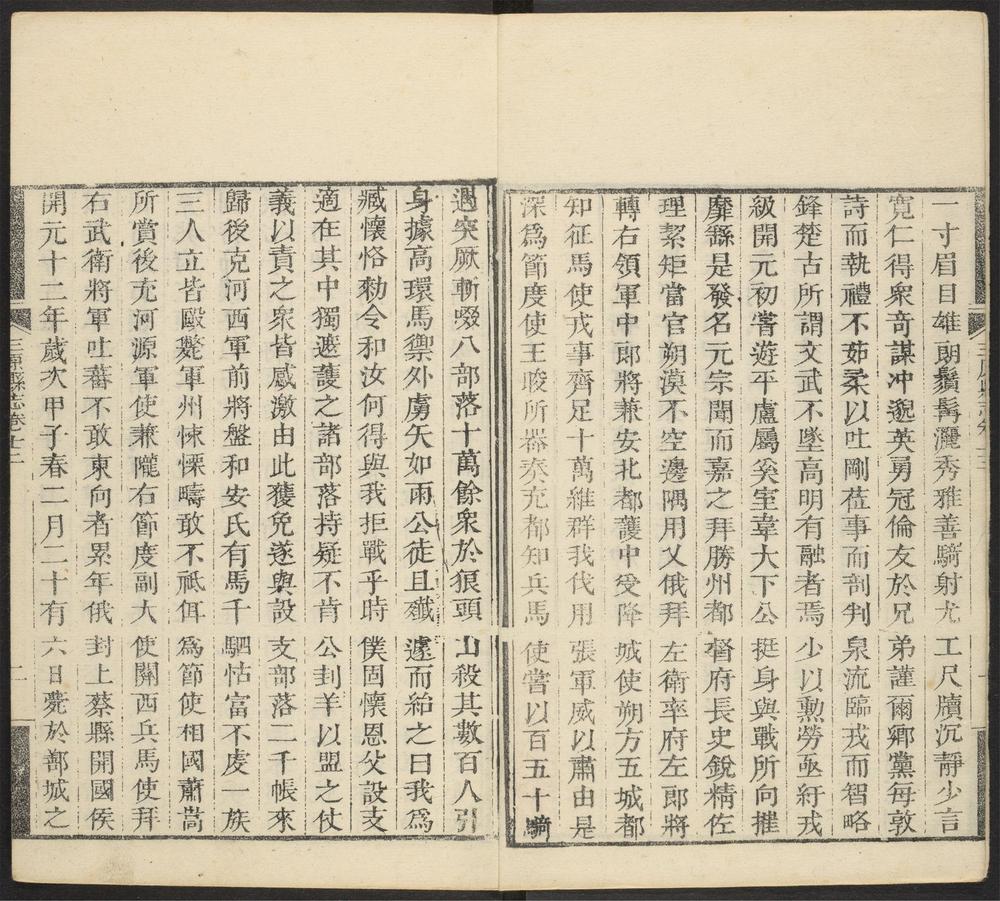 一寸眉目雄朗鬚髯灑秀雅善騎射尤工尺牘沉靜少言
寬仁得衆奇謀冲邈英勇冠倫友於兄弟謹爾鄉黨每敦
詩而執禮不茹柔以吐剛莅事而剖判泉流臨戎而智略
鋒楚古所謂文武不墜高明有融者焉少以勳勞亟紆戎
級開元初嘗遊平盧屬奚室韋大下公挺身與戰所向摧
靡繇是發名元宗聞而嘉之拜勝州都督府長史銳精佐
理絜矩當官朔漠不空邊隅用乂俄拜左衛率府左郎將
轉右領軍中郎將兼安北都護中受降城使朔方五城都
知征馬使戎事齊足十萬維群我伐用張軍威以肅由是
深爲節度使王晙所器奏充都知兵馬使嘗以百五十騎
遇突厥斬啜八部落十萬餘衆於狼頭山殺其數百人引
身據高環馬禦外虜矢如雨公徒且殲遽而紿之曰我爲
臧懷恪勑令和汝何得與我拒戰乎時僕固懷恩父設支
適在其中獨遮護之諸部落持疑不肯公刲羊以盟之仗
義以責之衆皆感激由此獲免遂與設支部落二千帳來
歸後克河西軍前將盤和安氏有馬千駟怙富不虔一族
三人立皆毆斃軍州悚慄疇敢不祗佴爲節使相國蕭嵩
所賞後充河源軍使兼隴右節度副大使關西兵馬使拜
右武衛將軍吐蕃不敢東向者累年俄封上蔡縣開國侯
開元十二年歲次甲子春二月二十有六日薨於鄯城之
三原縣志卷十二
二